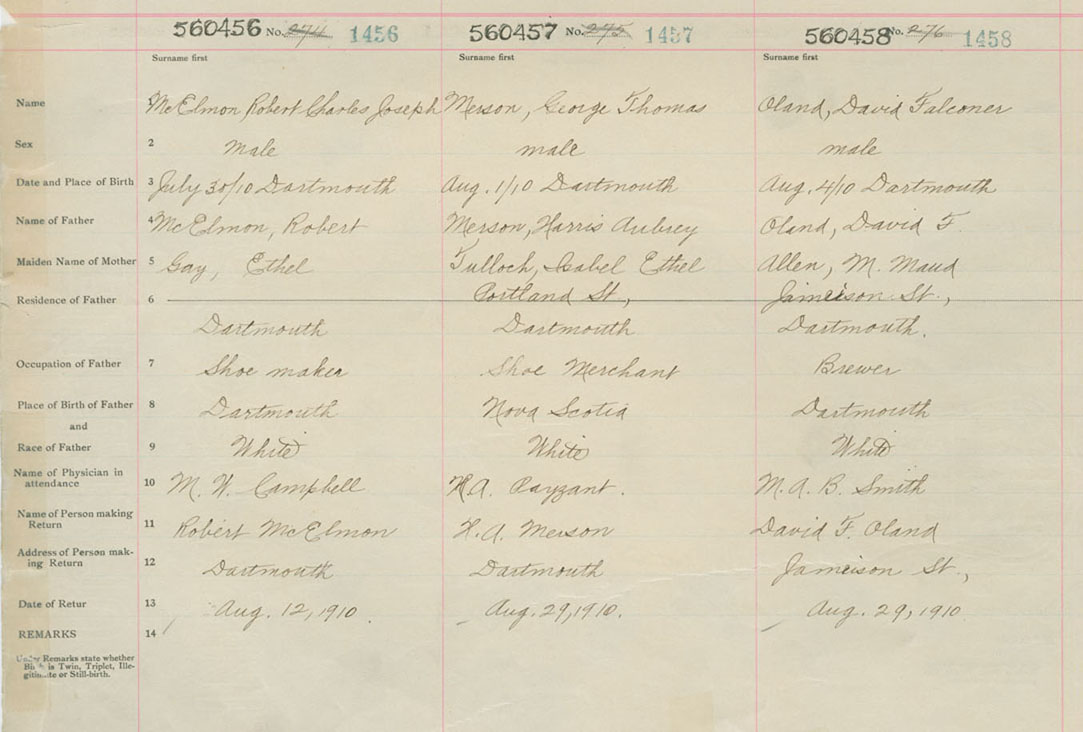 560456 No. 274 1456 560457 No. 275 1457 560458 No. 276 1458
Surname first Surname first Surname first
Name 1 McElmon Robert Charles Joseph Merson, George Thomas Oland, David Falconer
Sex 2 Male male male
Date and Place of Birth 3 July 30/10 Dartmouth Aug. 1/10 Dartmouth Aug. 4/10 Dartmouth
Name of Father 4 McElmon, Robert Merson, Harris Aubrey Oland, David F.
Maiden Name of Mother 5 Gay, Ethel Tulloch, Isabel Ethel Allen, M. Maud
Residence of Father 6 Portland St., Jameison St.,
Dartmouth Dartmouth Dartmouth.
Occupation of Father 7 Shoe maker Shoe Merchant Brewer
Place of Birth of Father 8 Dartmouth Nova Scotia Dartmouth
and
Race of Father 9 White White White
Name of Physician in
attendance 10 M. W. Campbell H.A. Payzant. M. A. B. Smith
Name of Person making
Return 11 Robert McElmon H. A. Merson David F. Oland
Address of Person mak-
ing Return 12 Dartmouth Dartmouth Jameison St.,
Date of Retur 13 Aug. 12, 1910. Aug. 29, 1910. Aug. 29, 1910
REMARKS 14
Under Remarks state whether
Birth is Twin, Triplet, Ille-
gitimate or Still-birth.